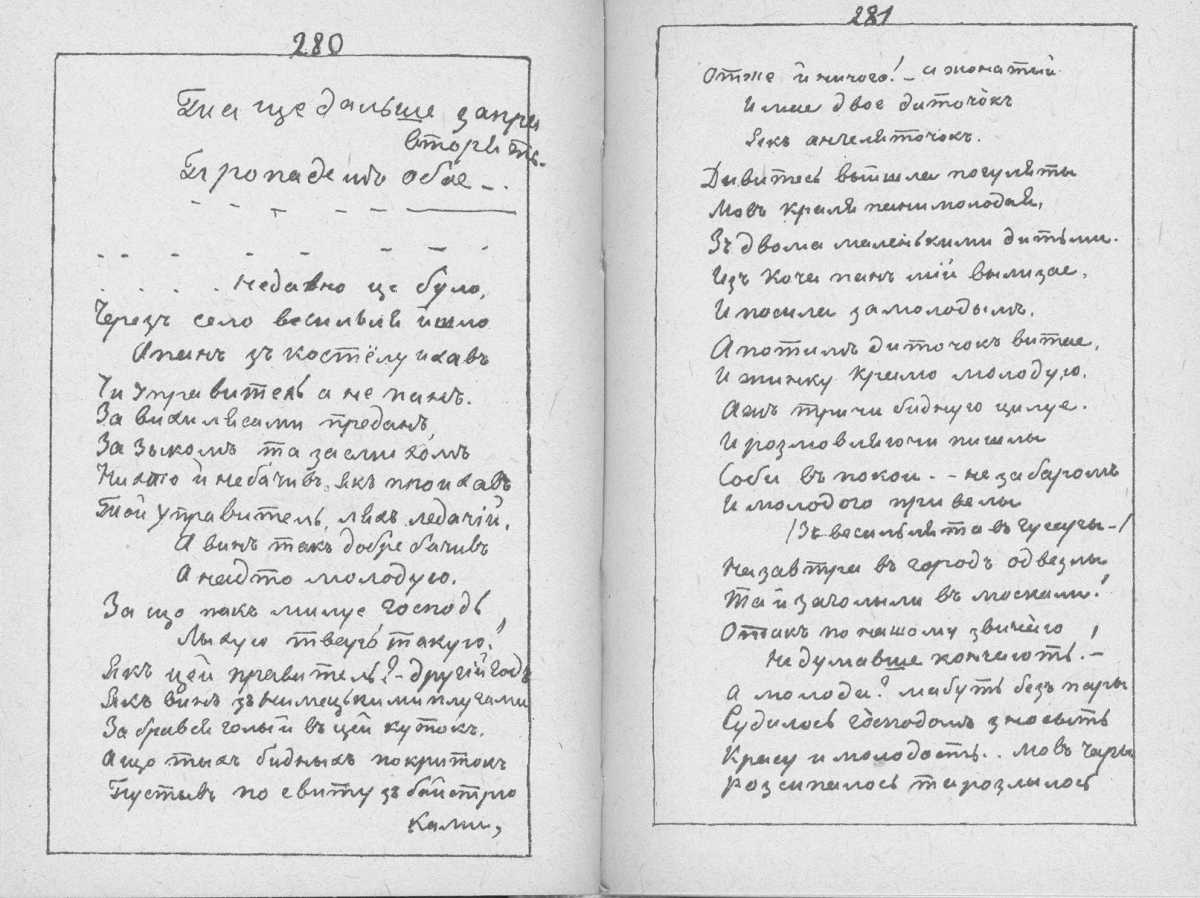 280
Та ще дальше запри
вторить.
Пропадешъ обое –..
. . . . недавно це було,
Черезъ село весильля йшло
А панъ зъ костёлу ихавъ
Чи управитель а не панъ.
За вихилясами преданъ,
За зыкомъ та за смихомъ
Нихто й небачивъ, якъ проихавъ
Той управитель, ляхъ ледачій,
А винъ такъ добре бачивъ
А надто молодую.
За що пакъ милуе господь
Лыхую тварь такую!
Якъ цей правитель? – другій годъ
Якъ винъ зъ нимецькими плугами
Забравсь голый въ цей кутокъ.
А що тыхъ бидныхъ покритокъ
Пустывъ по свиту зъ байстрю
ками,
281
Отже й ничого! – а жонатий
И мае двое диточокъ
Якъ ангеляточокъ.
Дивитесь выйшла погуляты
Мовъ краля пани молодая,
Зъ двома маленькими дитьми.
Изъ коча панъ мій вылизае,
И посила за молодымъ,
А потимъ диточокъ витае,
И жинку кралю молодую.
Ажъ тричи бидную цилуе.
И розмовляючи пишлы
Соби въ покои. – незабаромъ
И молодого привелы
/Зъ весильля та въ
Назавтра въ городъ одвезлы
Та й заголылы въ москали!
Отакъ по нашому звичаю
Не думавше кончають! –
А молода? мабуть безъ пары
Судилось господомъ зносыть
Красу и молодость.. мовъ чары
Розсипалось та розлылось